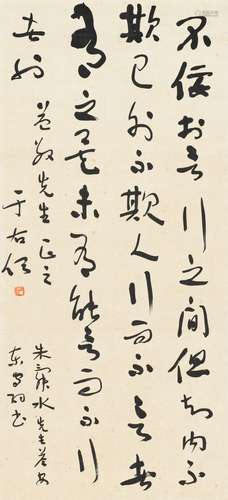 不佞於言行之間但知內不
欺己外不欺人行而不言者
有之矣未有能言而不行
者也 先生正之
于右任
朱舜水先生答安
東守約書